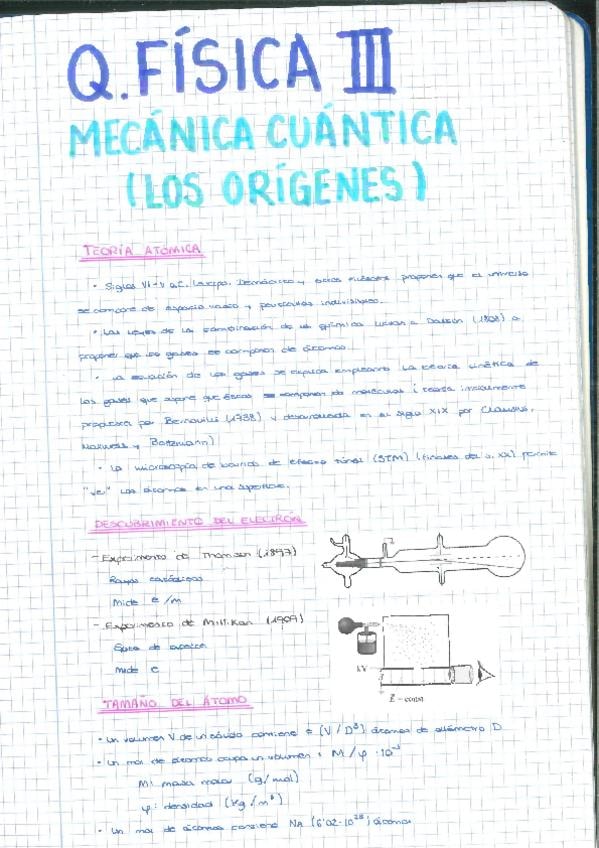 Q. FÍSICA III
MECÁNICA CUÁNTICA
(LOS ORÍGENES)
TEORÍA ATÓMICA
• Siglos VI-V a.C. Leucipo, Demócrito y otros proponen que el universo
se compone de espacio vacío y partículas indivisibles.
• Las leyes de la combinación de la química llevan a Dalton (1808) a
proponer que los gases se componen de átomos.
• La ecuación de los gases se explica empleando la teoría cinética de
los gases que supone que éstos se componen de moléculas (teoría inicialmente
propuesta por Bernouilli (1738) y desarrollada en el siglo XIX por Clausius,
Maxwell y Boltzmann)
• La microscopía de barrido de efecto túnel (STM) (finales del s. XX) permite
"ver" los átomos en una superficie.
DESCUBRIMIENTO DEL ELECTRÓN
- Experimento de Thomson (1897)
Rayos catódicos
Mide e/m
- Experimento de Millikan (1909)
Gota de aceite
mide e
1V
E - conta
TAMAÑO DEL ÁTOMO
• Un volumen V de un sólido contiene ≈ (V/D³) átomos de diámetro D
• Un mol de átomos ocupa un volumen: M/φ · 10⁻³
M: masa molar (g/mol)
φ: densidad (kg/m³)
• Un mol de átomos contiene NA (6'02·10²³) átomos